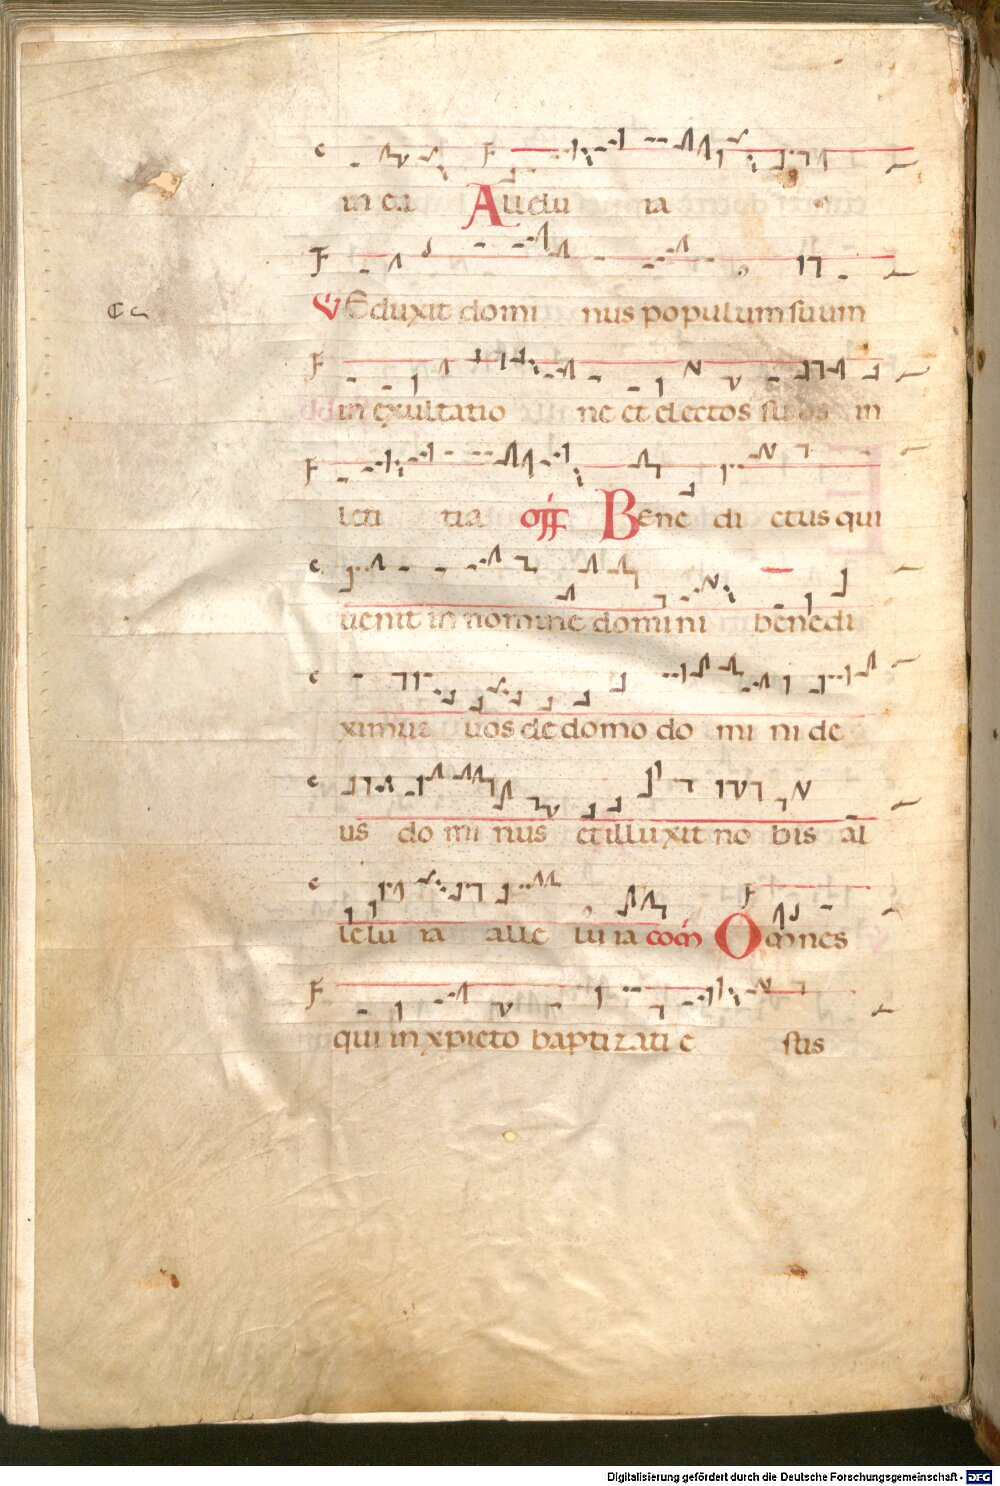 in ea Alleluia
V Eduxit dominus populum suum
in exultatione et electos suos in
leti tia off Bene di ctus qui
uenit in nomine domini benedi
ximus uos de domo domini de
us dominus et illuxit nobis al
leluia alleluia com Omnes
qui in xpicto baptizati estis
Digitalisierung gefördert durch die Deutsche Forschungsgemeinschaft - DFG